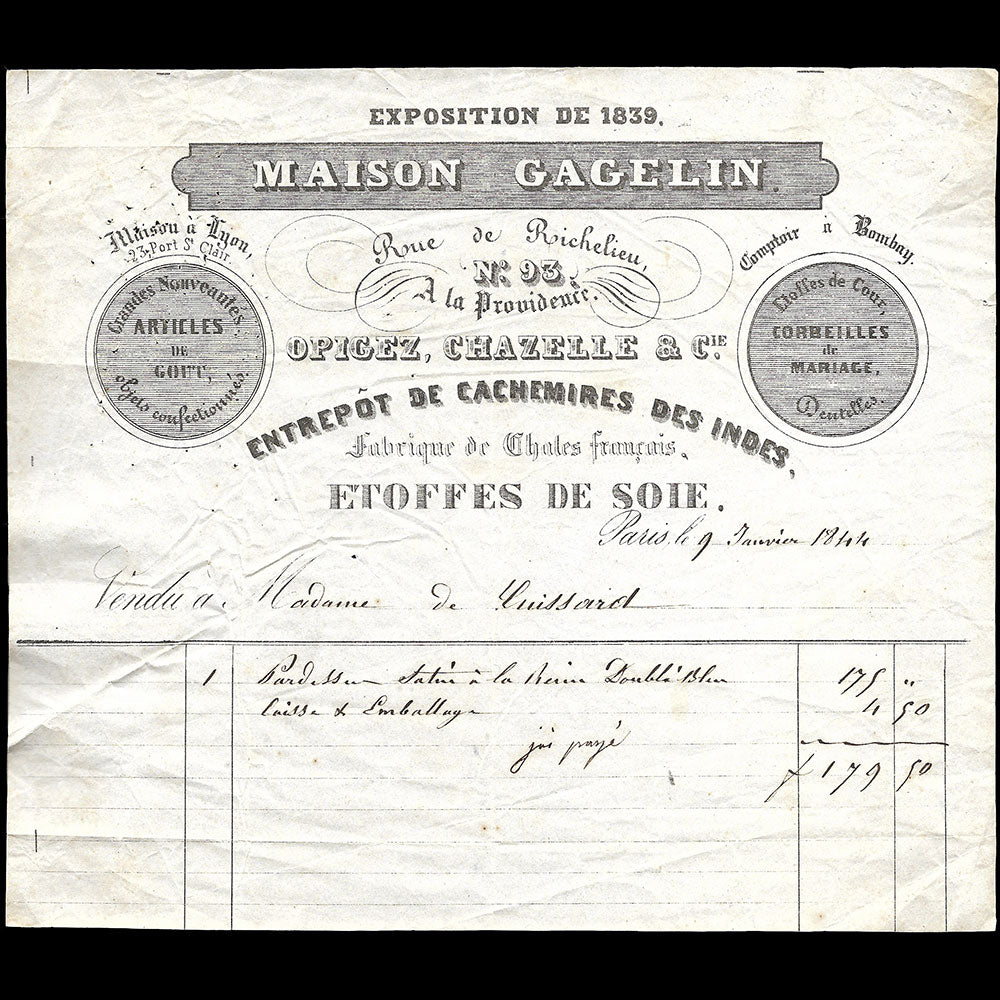 EXPOSITION DE 1839.
MAISON GAGELIN.
Maison à Lyon,
23, Port St Clair.
Grandes Nouveautés.
ARTICLES
DE
GOUT,
objets confectionnés.
Rue de Richelieu,
No. 93,
A la Providence.
Comptoir à Bombay.
Etoffes de Cour,
CORBEILLES
de
MARIAGE,
Dentelles.
OPIGEZ, CHAZELLE & CIE
ENTREPÔT DE CACHEMIRES DES INDES,
Fabrique de Chales français,
ETOFFES DE SOIE.
Paris, le 9 Janvier 1844
Vendu à Madame de Cuissard
1 Pardessus satin à la Reine Doublé Bleu 175 "
Caisse & Emballage 4 50
j'ai payé
f 179 50